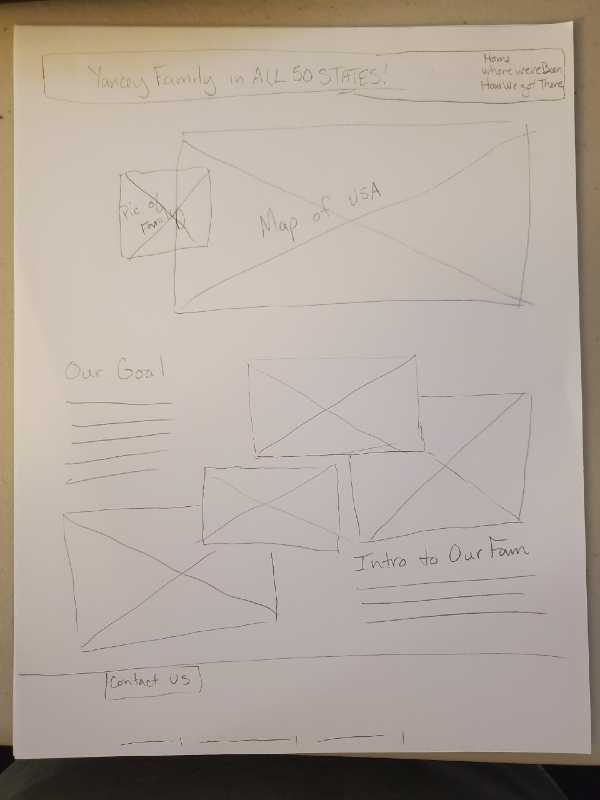 Yancey Family in ALL 50 STATES!
Home
Where we've Been
How We got There
Pic of
Family
Map of USA
Our Goal
Intro to Our Fam
Contact Us